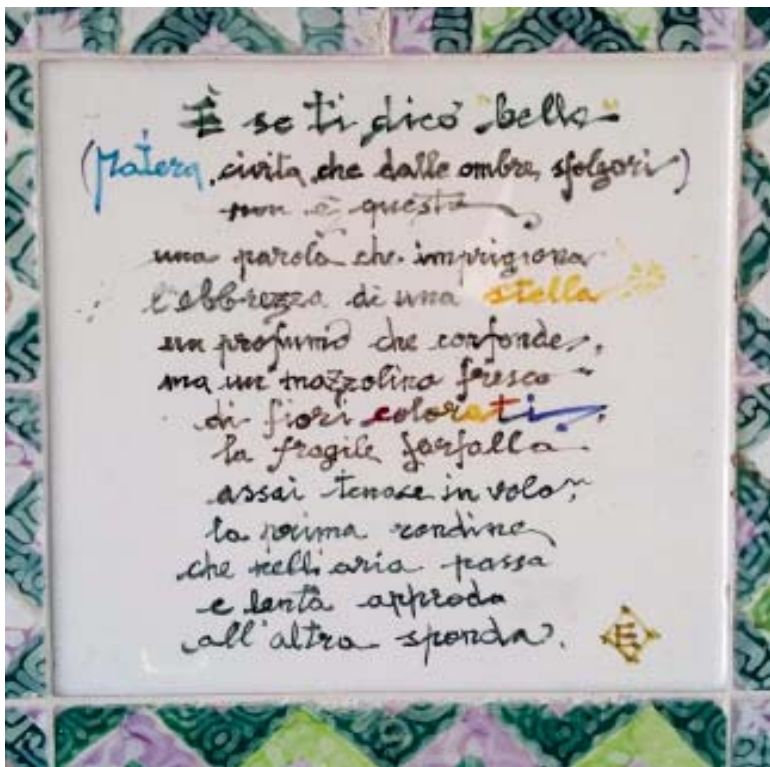 E se ti dico "bella"
(Matera, civita che dalle ombre sfolgori)
non è questa
una parola che imprigiona
l'ebbrezza di una stella
un profumo che confonde,
ma un mazzolino fresco
di fiori colorati,
la fragile farfalla
assai tenace in volo,
la prima rondine
che nell'aria passa
e lenta approda
all'altra sponda.
E